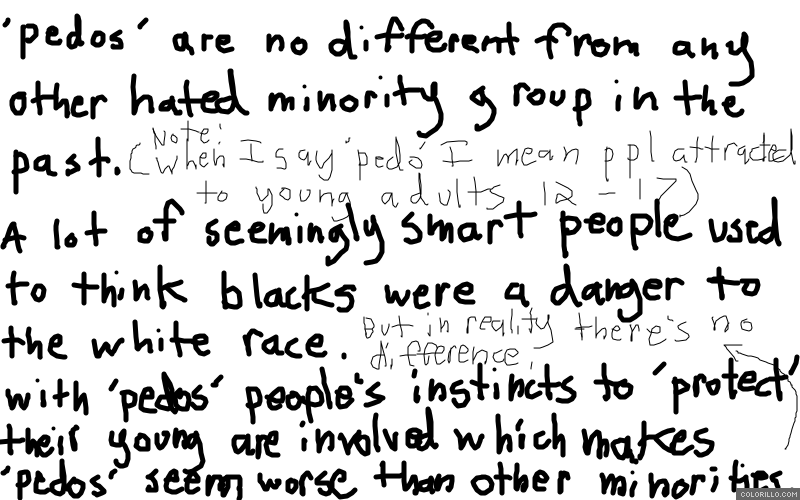 'pedos' are no different from any
other hated minority group in the
past. (Note: when I say 'pedo' I mean ppl attracted
to young adults 12 - 17)
A lot of seemingly smart people used
to think blacks were a danger to
the white race. But in reality there's no
difference.
with 'pedos' people's instincts to 'protect'
their young are involved which makes
'pedos' seem worse than other minorities
COLORILLO.COM